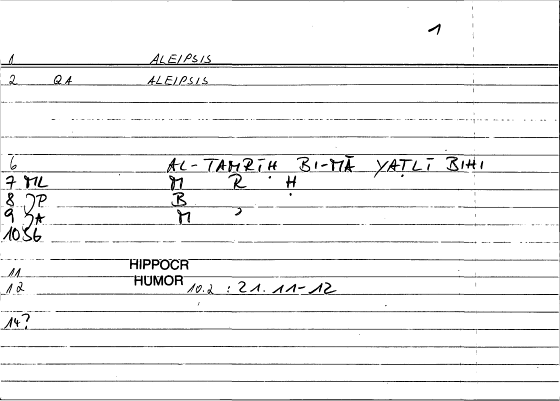 1
1 ALEIPSIS
2 QA ALEIPSIS
6 AL-TAMRĪḪ BI-MĀ YAṬLĪ BIHI
7 ML M R Ḫ
8 JP B
9 JA M ʾ
10 56
11 HIPPOCR
12 HUMOR 10.2 : 21. 11-12
14?